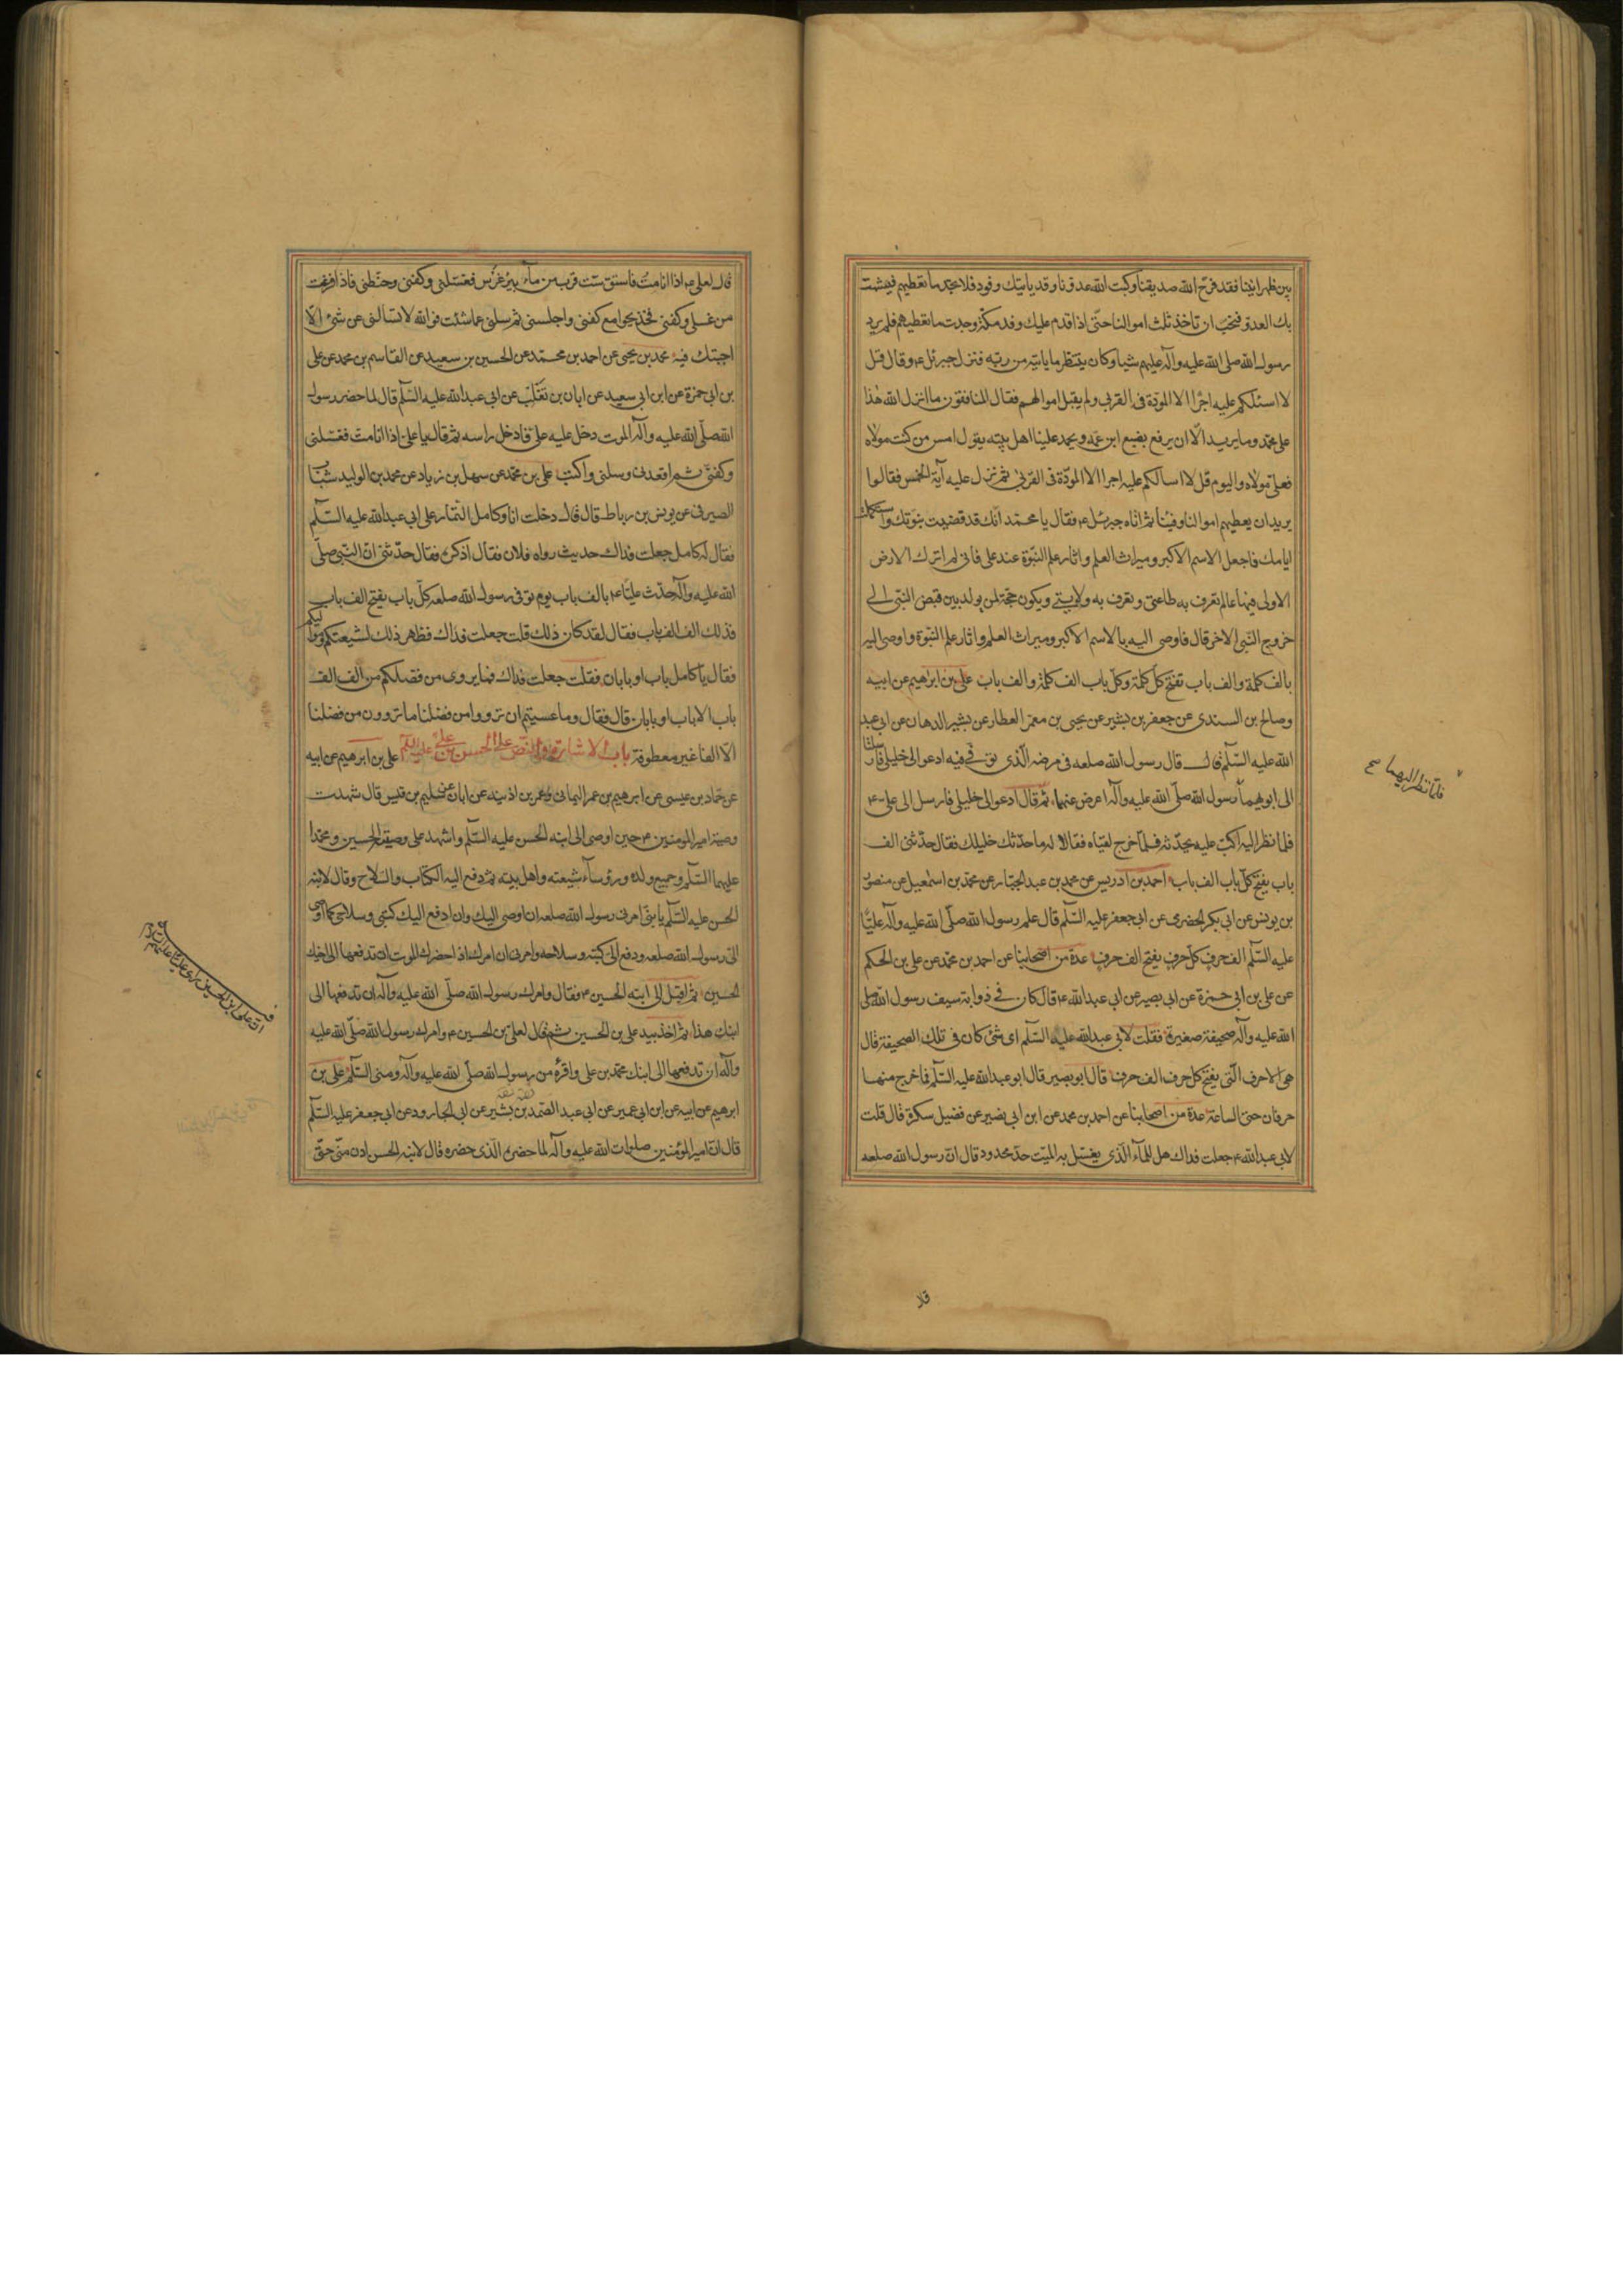 بين ظهرانينا فقد فرح الله صديقنا وكبت الله عدونا وقد ياتيك وفود فلا تجد ما تعطيهم فيشمت
بك العدو فنحب ان تاخذ ثلث اموالنا حتى اذا قدم عليك وفد مكة وجدت ما تعطيهم فلم يرد
رسول الله صلى الله عليه وآله عليهم شيا وكان ينتظر ما ياتيه من ربه فنزل جبرئل ع وقال قل
لا اسئلكم عليه اجرا الا المودة في القربى ولم يقبل اموالهم فقال المنافقون ما انزل الله هذا
على محمد وما يريد الا ان يرفع بضبع ابن عمه ويحمد علينا اهل بيته يقول امس من كنت مولاه
فعلي مولاه واليوم قل لا اسالكم عليه اجرا الا المودة في القربى ثم نزل عليه آية الخمس فقالوا
يريد ان يعطيهم اموالنا وفيئنا ثم اتاه جبرئل ع فقال يا محمد انك قد قضيت نبوتك واستكملت
ايامك فاجعل الاسم الاكبر وميراث العلم واثار علم النبوة عند علي فاني لم اترك الارض
الا ولي فيها عالم تعرف به طاعتي وتعرف به ولايتي ويكون حجة لمن يولد بين قبض النبي الى
خروج النبي الاخر قال فاوصى اليه بالاسم الاكبر وميراث العلم واثار علم النبوة واوصى اليه
بالف كلمة والف باب تفتح كل كلمة وكل باب الف كلمة والف باب علي بن ابراهيم عن ابيه
وصالح بن السندي عن جعفر بن بشير عن يحيى بن معمر العطار عن بشير الدهان عن ابي عبد
الله عليه السلم قال قال رسول الله صلعه في مرضه الذي توفي فيه ادعوا لي خليلي فارسلتا
الى ابويهما رسول الله صلى الله عليه وآله اعرض عنهما ثم قال ادعوا لي خليلي فارسل الى علي ع
فلما نظر اليه اكب عليه يحدثه فلما خرج لقياه فقالا له ما حدثك خليلك فقال حدثني الف
باب يفتح كل باب الف باب احمد بن ادريس عن محمد بن عبد الجبار عن محمد بن اسمعيل عن منصور
بن يونس عن ابي بكر الحضرمي عن ابي جعفر عليه السلم قال علم رسول الله صلى الله عليه وآله عليا
عليه السلم الف حرف كل حرف يفتح الف حرف عدة من اصحابنا عن احمد بن محمد عن علي بن الحكم
عن علي بن ابي حمزة عن ابي بصير عن ابي عبد الله ع قال كان في ذوابة سيف رسول الله صلى
الله عليه وآله صحيفة صغيرة فقلت لابي عبد الله عليه السلم اي شئ كان في تلك الصحيفة قال
هي الاحرف التي يفتح كل حرف الف حرف قال ابو بصير قال ابو عبد الله عليه السلم فما خرج منها
حرفان حتى الساعة عدة من اصحابنا عن احمد بن محمد عن ابن ابي نصير عن فضيل سكرة قال قلت
لابي عبد الله ع جعلت فداك هل للماء الذي يغسل به الميت حد محدود قال ان رسول الله صلعه
فلما نظر اليهما
قال لعلي ع اذا انا مت فاستق ست قرب من ماء بير غرس فغسلني وكفني وحنطني فاذا فرغت
من غسلي وكفني فخذ بجوامع كفني واجلسني ثم سلني عما شئت فوالله لا تسالني عن شئ الا
اجبتك فيه محمد بن يحيى عن احمد بن محمد عن الحسين بن سعيد عن القاسم بن محمد عن علي
بن ابي حمزة عن ابن ابي سعيد عن ابان بن تغلب عن ابي عبد الله عليه السلم قال لما حضر رسول
الله صلى الله عليه وآله الموت دخل عليه علي فادخل راسه ثم قال يا علي اذا انا مت فغسلني
وكفني ثم اقعدني وسلني واكتب علي بن محمد عن سهل بن زياد عن محمد بن الوليد شباب
الصيرفي عن يونس بن رباط قال قال دخلت انا وكامل التمار على ابي عبد الله عليه السلم
فقال له كامل جعلت فداك حديث رواه فلان فقال اذكره فقال حدثني ان النبي صلى
الله عليه وآله حدث عليا ع بالف باب يوم توفي رسول الله صلعه كل باب يفتح الف باب
فذلك الف الف باب فقال لقد كان ذلك قلت جعلت فداك فظهر ذلك لشيعتكم ومواليكم
فقال يا كامل باب او بابان فقلت جعلت فداك فما يروى من فضلكم من الف الف
باب الا باب او بابان قال فقال وما عسيتم ان ترووا من فضلنا ما تروون من فضلنا
الا الفا غير معطوفة باب الاشارة والنص على الحسن بن علي عليه السلم علي بن ابرهيم عن ابيه
عن حماد بن عيسى عن ابرهيم بن عمر اليماني وعمر بن اذينة عن ابان عن سليم بن قيس قال شهدت
وصية امير المومنين ع حين اوصى الى ابنه الحسن عليه السلم واشهد على وصيته الحسين ومحمدا
عليهما السلم وجميع ولده ورؤساء شيعته واهل بيته ثم دفع اليه الكتاب والسلاح وقال لابنه
الحسن عليه السلم يا بني امرني رسول الله صلعه ان اوصي اليك وان ادفع اليك كتبي وسلاحي كما اوصى
الى رسول الله صلعه ودفع الى كتبه وسلاحه وامرني ان امرك اذا حضرك الموت ان تدفعها الى اخيك
الحسين ثم اقبل الى ابنه الحسين ع فقال وامرك رسول الله صلى الله عليه وآله ان تدفعها الى
ابنك هذا ثم اخذ بيد علي بن الحسين ثم قال لعلي بن الحسين ع وامرك رسول الله صلى الله عليه
وآله ان تدفعها الى ابنك محمد بن علي واقرئه من رسول الله صلى الله عليه وآله ومني السلم علي بن
ابرهيم عن ابيه عن ابن ابي عمير عن ابي عبد الصمد بن بشير عن ابي الجارود عن ابي جعفر عليه السلم
قال ان امير المؤمنين صلوات الله عليه وآله لما حضره الذي حضره قال لابنه الحسن ادن مني حتى